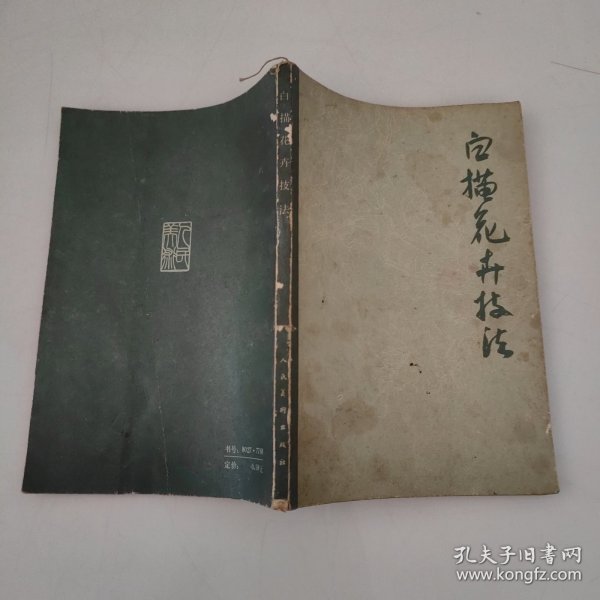 白描花卉技法
白描花卉技法
人民美术出版社
人民美术
书号：8027·77
定价：
孔夫子旧书网
www.kongfz.com